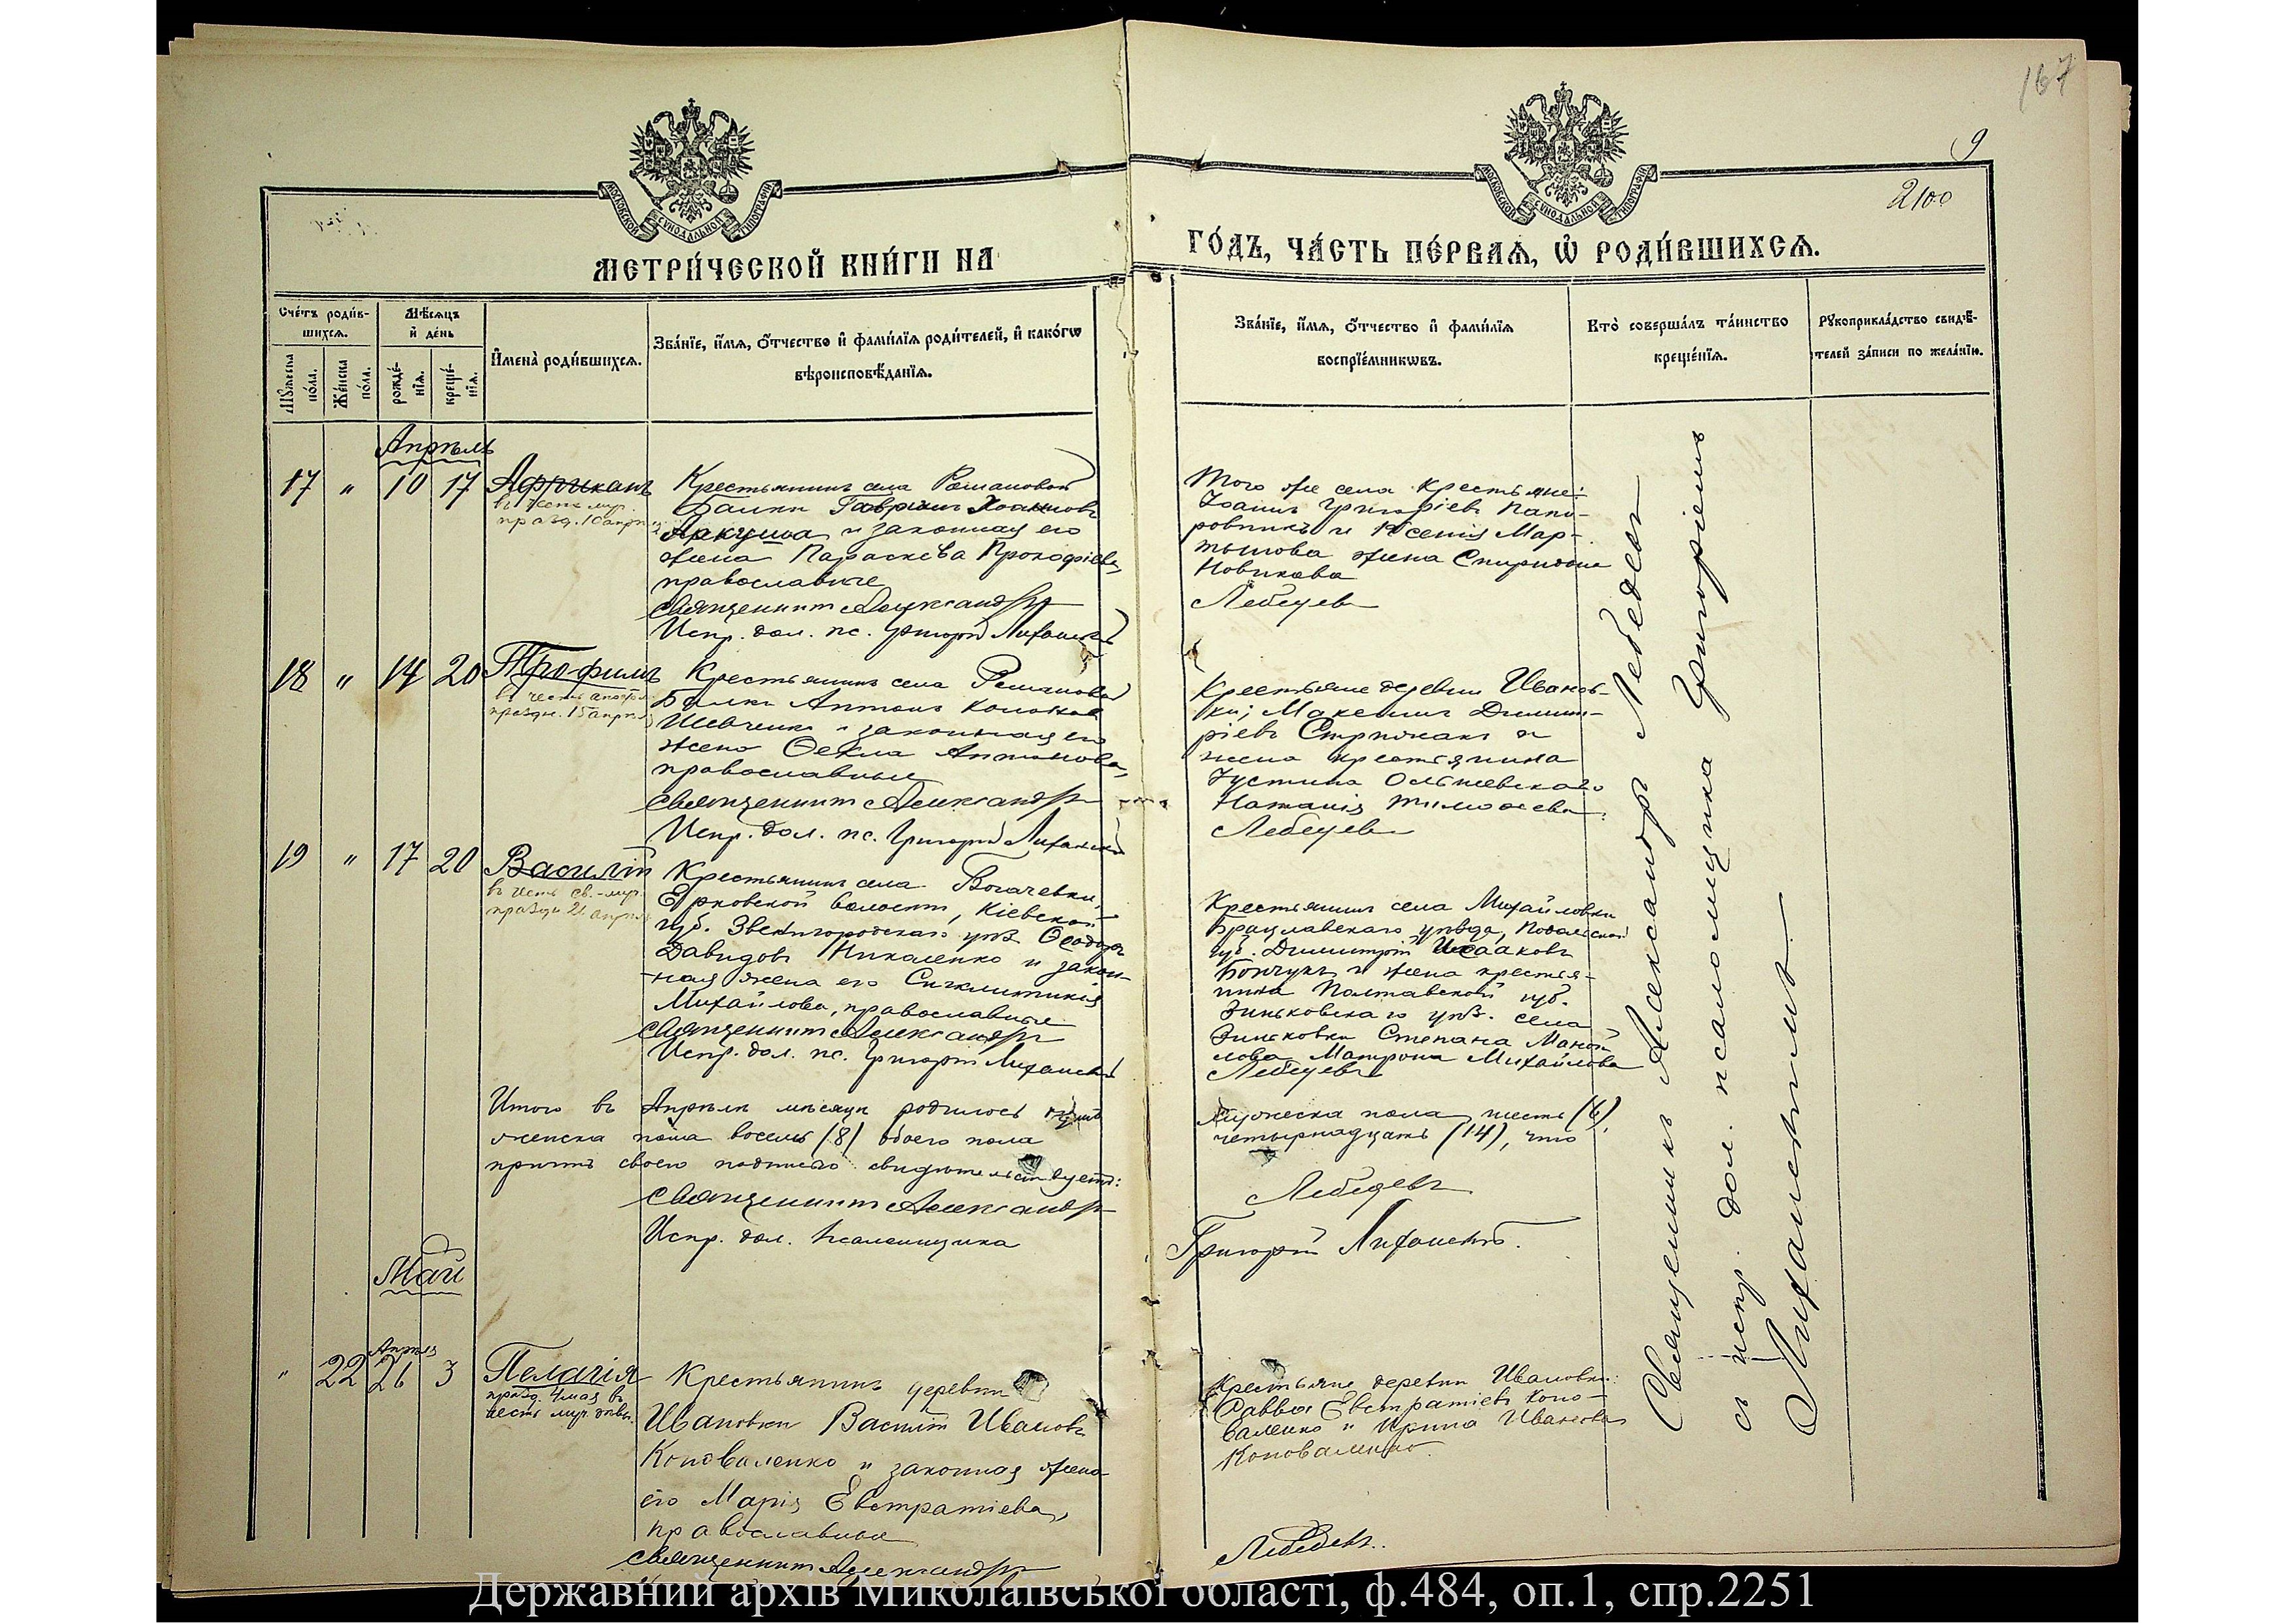 167
9
2100
МОСКОВСКОЙ СѴНОДАЛЬНОЙ ТИПОГРАФІИ
МОСКОВСКОЙ СѴНОДАЛЬНОЙ ТИПОГРАФІИ
МЕТРИ́ЧЕСКОЙ КНИ́ГИ НА
ГО́ДЪ, ЧА́СТЬ ПЕ́РВАѦ, Ѽ РОДИ́ВШИХСѦ.
Сче́тъ роди́в-
шихсѧ.
Мѣ́сѧцъ
и҆ де́нь
Мꙋ́жеска
по́ла.
Же́нска
по́ла.
рожде́-
нїѧ.
креще́-
нїѧ.
И҆мена̀ роди́вшихсѧ.
Зва́нїе, и҆́мѧ, ѻ҆́тчество и҆ фамı́лїѧ роди́телей, и҆ како́гѡ
вѣроисповѣ́данїѧ.
Зва́нїе, и҆́мѧ, ѻ҆́тчество и҆ фамı́лїѧ
воспрїе́мникѡвъ.
Кто̀ соверша́лъ та́инство
креще́нїѧ.
Рꙋкоприкла́дство свидѣ́-
телей за́писи по жела́нїю.
Апрѣль
17 " 10 17 Африканъ
въ честь муч.
празд. 10 апр
Крестьянинъ села Романовой
Балки Гавріилъ Іоанновъ
Аркуша и законная его
жена Параскева Прокофіева,
православные
Священникъ Александръ
Испр. дол. пс. Григорій Лиханскій
Того же села крестьяне:
Іоаннъ Григоріевъ
и Ксенія Мар-
тынова жена Спиридона
Новикова
Лебедевъ
18 " 14 20 Трофимъ
въ честь апост.
праздн. 15 апрѣля
Крестьянинъ села Романовой
Балки Антонъ
Шевченко и законная его
жена Ѳекла Антонова,
православные
Священникъ Александръ
Испр. дол. пс. Григорій Лиханскій
Крестьяне деревни Иванов-
ки; Максимъ Димит-
ріевъ и
жена крестьянина
Іустина Ольшевскаго
Наталія Тимоѳеева.
Лебедевъ
19 " 17 20 Василій
въ честь св. муч.
праздн 21 апрѣля
Крестьянинъ села Богачевки,
Ерковской волости, Кіевской
губ. Звенигородскаго уѣз. Ѳеодоръ
Давидовъ Николенко и закон-
ная жена его Сигклитикія
Михайлова, православные
Священникъ Александръ
Испр. дол. пс. Григорій Лиханскій
Крестьянинъ села Михайловки
Брацлавскаго уѣзда, Подольской
губ. Димитрій Исааковъ
Бончукъ и жена крестья-
нина Полтавской губ.
Зиньковскаго уѣз. села
Зиньковки Степана
Матрона Михайлова
Лебедевъ
Итого въ Апрѣлѣ мѣсяцѣ родилось
Мужеска пола шесть (6),
женска пола восемь (8) обоего пола
четырнадцать (14), что
причтъ своею подписью свидѣтельствуетъ:
Священникъ Александръ
Лебедевъ
Испр. дол. псаломщика
Григорій Лиханскій.
Май
Апрѣля
" 22 26 3 Пелагія
празд. 4 мая въ
честь муч. дѣвы.
Крестьянинъ деревни
Ивановки Василій Ивановъ
Коноваленко и законная жена
его Марія Евстратіева,
православные
Священникъ Александръ
Крестьяне деревни Ивановки:
Савва Евстратіевъ Коно-
валенко и Ирина Иванова
Коноваленко.
Лебедевъ.
Священникъ Александръ Лебедевъ
съ испр. дол. псаломщика Григоріемъ
Лиханскимъ
Державний архів Миколаївської області, ф.484, оп.1, спр.2251